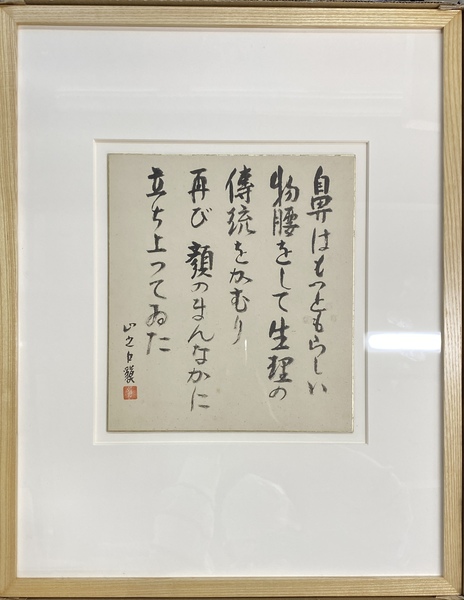 鼻はもつともらしい
物腰をして生理の
傳統をかむり
再び顔のまんなかに
立ち上つてゐた
山之口貘